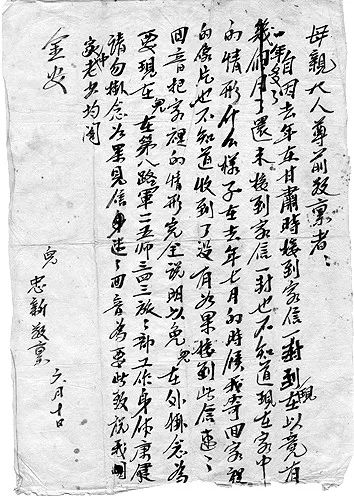 母親大人尊前敬稟者：
自因去年在甘肅時接到家信一封到現在以竟有
一年多了
幾個月了還未接到家信一封也不知道現在家中
的情形什么樣子在去年七月的時候我寄回家裡
的像片也不知道收到了没有以果接到此信速〻
回音把家裡的情形完全說明以免兒在外掛念為
要現在兒在第八路軍一一五師三四三旅〻部工作身体康健
請勿掛念以果見信速〻回音為要此敬祝我
家中老少均
金安
兒 忠新敬稟 六月十日